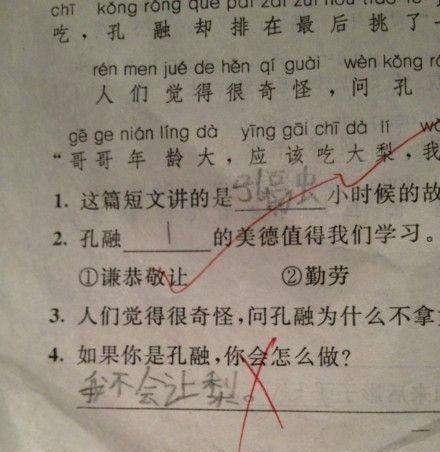 chī kǒng róng què pái zài zuì hòu tiāo le
吃，孔融却排在最后挑了一
rén men jué de hěn qí guài wèn kǒng
人们觉得很奇怪，问孔
gē ge nián líng dà yīng gāi chī dà lí
“哥哥年龄大，应该吃大梨，我
1. 这篇短文讲的是______小时候的故
2. 孔融 1 的美德值得我们学习。
①谦恭敬让 ②勤劳
3. 人们觉得很奇怪，问孔融为什么不拿
4. 如果你是孔融，你会怎么做？
我不会让梨。